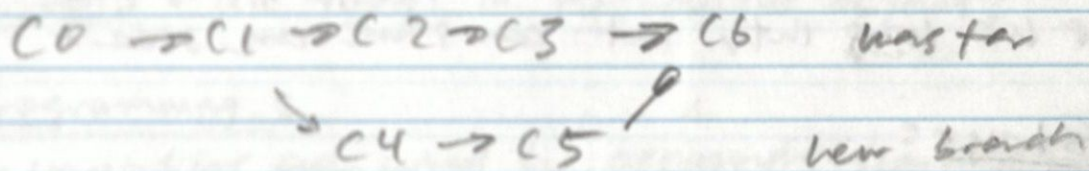 C0 → C1 → C2 → C3 → C6 master
C4 → C5 new branch